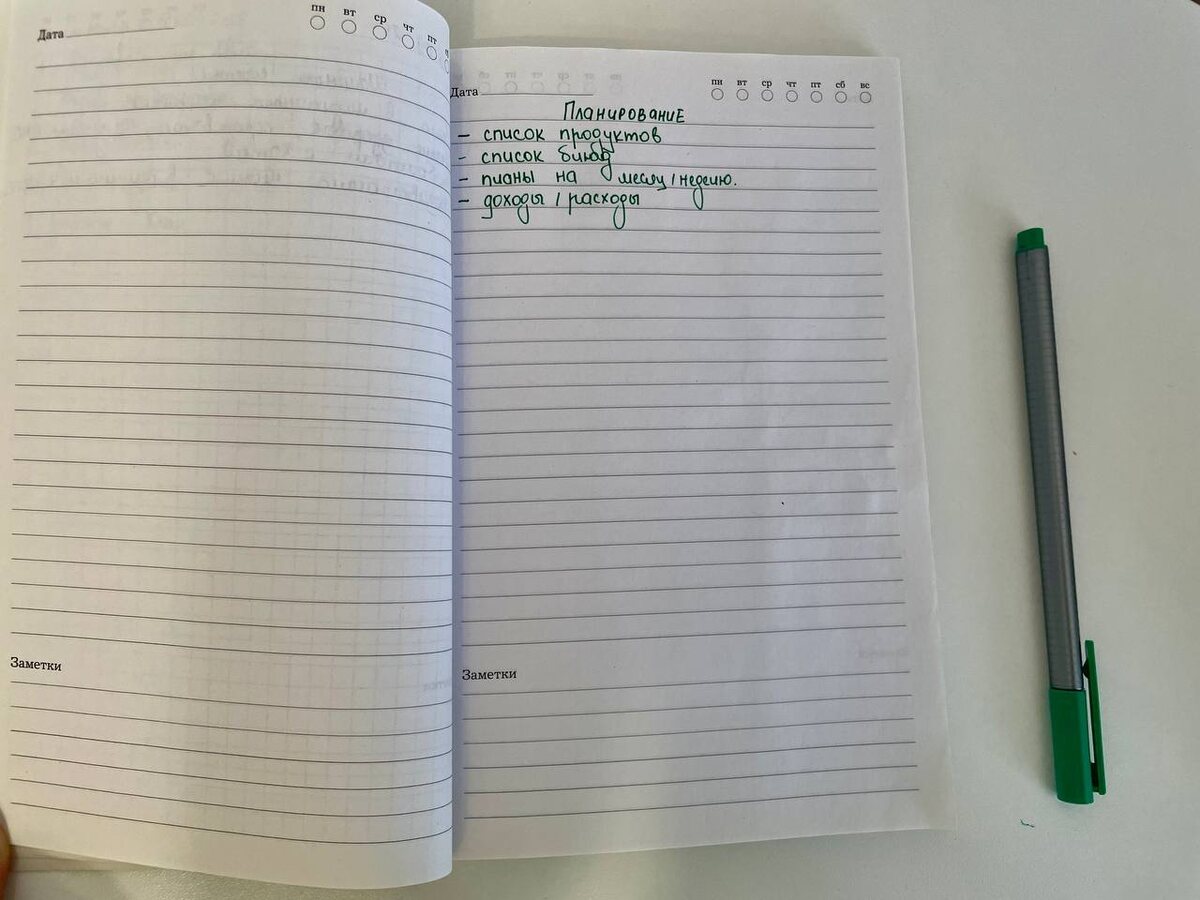 Дата
пн вт ср чт пт
Дата
пн вт ср чт пт сб вс
Планирование
- список продуктов
- список блюд
- планы на месяц / неделю.
- доходы / расходы
Заметки
Заметки